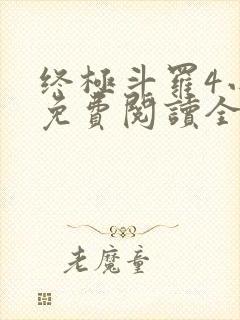 终極斗羅4
免費閱讀全
老魔童